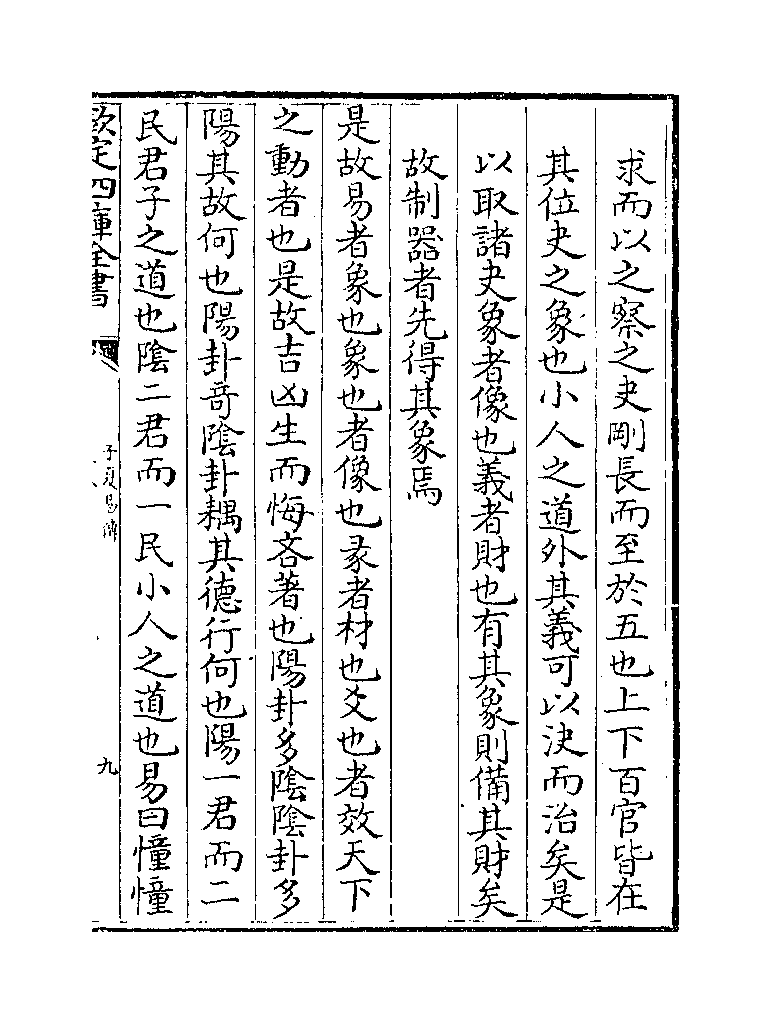 求而以之察之夬剛長而至於五也上下百官皆在
其位夬之象也小人之道外其義可以決而治矣是
以取諸夬象者像也義者財也有其象則備其財矣
故制器者先得其象焉
是故易者象也象也者像也彖者材也爻也者效天下
之動者也是故吉凶生而悔吝著也陽卦多陰陰卦多
陽其故何也陽卦竒陰卦耦其德行何也陽一君而二
民君子之道也陰二君而一民小人之道也易曰憧憧
欽定四庫全書
子夏易傳
九